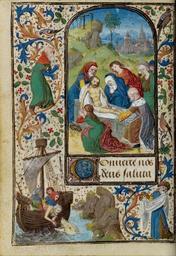 Onuerte nos
deus salutari